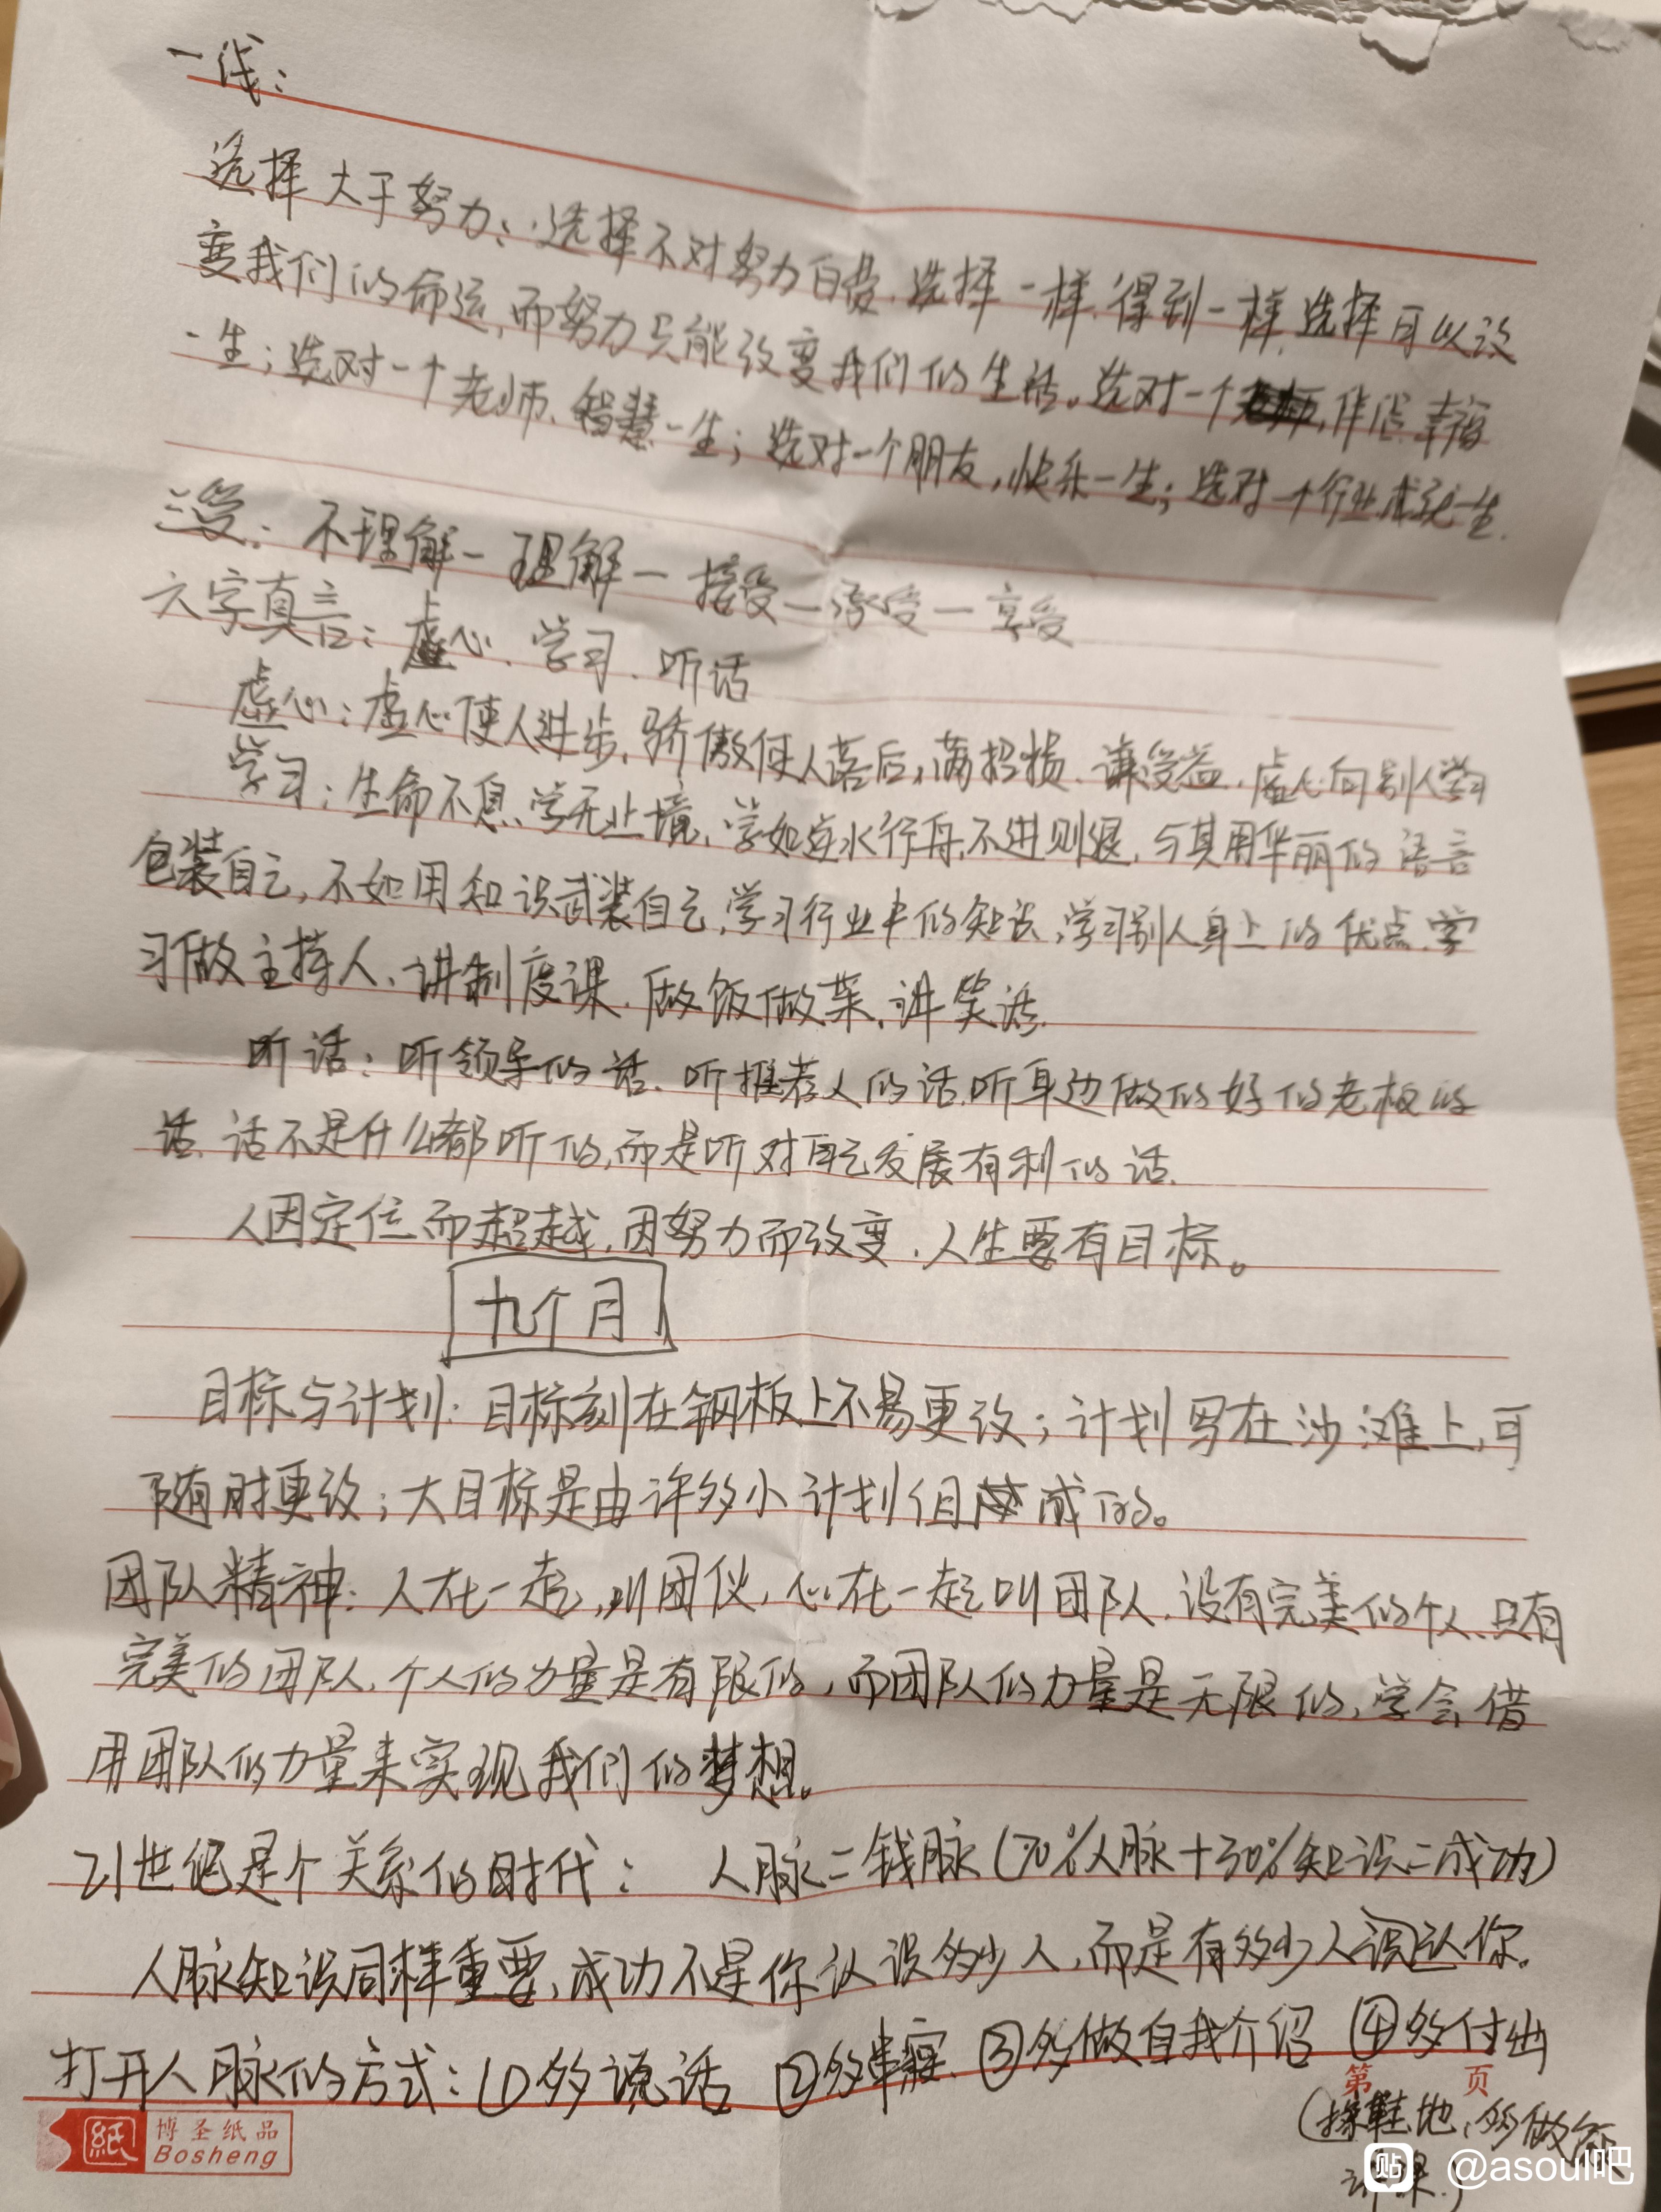 一线：
选择大于努力：选择不对努力白费，选择一样，得到一样，选择可以改
变我们的命运，而努力只能改变我们的生活。选对一个伴侣，幸福
一生；选对一个老师，智慧一生；选对一个朋友，快乐一生；选对一个行业，成就一生.
三受：不理解—理解—接受—承受—享受
六字真言：虚心、学习、听话
虚心：虚心使人进步，骄傲使人落后，满招损、谦受益，虚心向别人学习
学习：生命不息，学无止境，学如逆水行舟，不进则退，与其用华丽的语言
包装自己，不如用知识武装自己，学习行业中的知识，学习别人身上的优点，学
习做主持人、讲制度课、做饭做菜、讲笑话.
听话：听领导的话、听推荐人的话，听身边做的好的老板的
话、话不是什么都听的，而是听对自己发展有利的话.
人因定位而超越，因努力而改变，人生要有目标。
九个月
目标与计划：目标刻在钢板上不易更改；计划写在沙滩上，可
随时更改；大目标是由许多小计划组成的。
团队精神：人在一起，叫团伙，心在一起叫团队，没有完美的个人，只有
完美的团队，个人的力量是有限的，而团队的力量是无限的，学会借
用团队的力量来实现我们的梦想。
21世纪是个关系的时代： 人脉=钱脉（70%人脉+30%知识=成功）
人脉知识同样重要，成功不是你认识多少人，而是有多少人认识你。
打开人脉的方式：①多说话 ②多串寝、③多做自我介绍 ④多付出
第 页
（擦鞋地，多做
讲课）
紙 博圣纸品
Bosheng
贴 @asoul吧